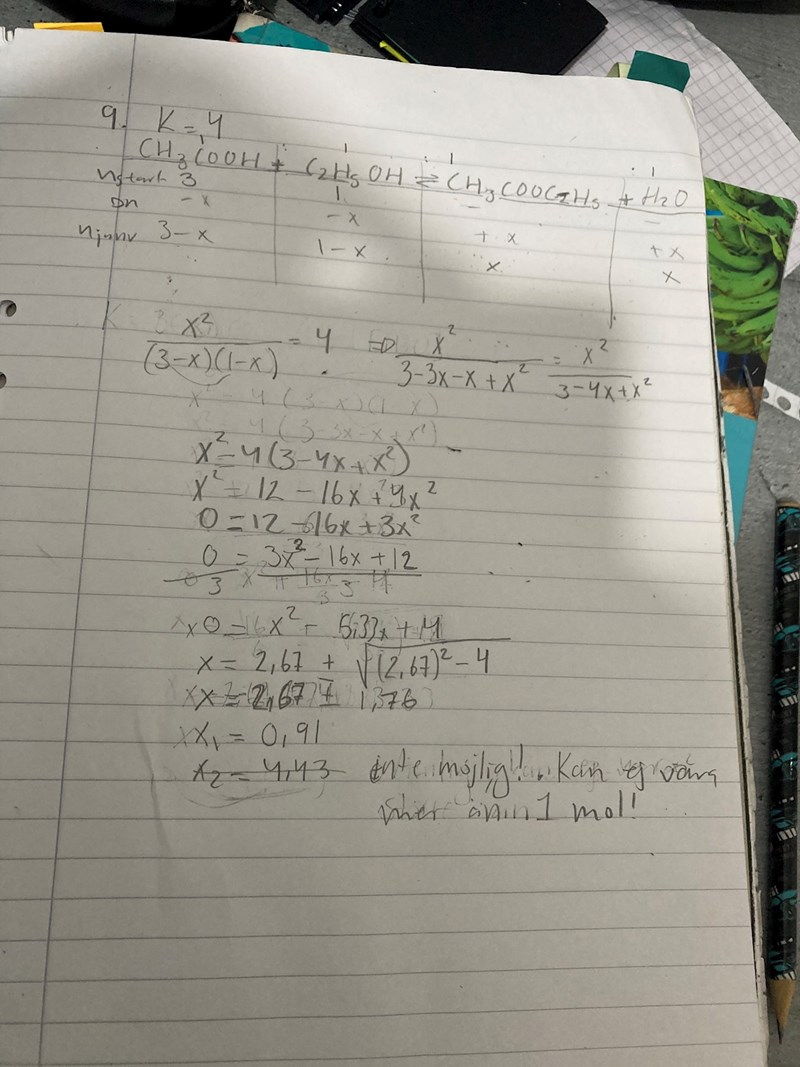 9. K = 4
CH3COOH + C2H5OH ⇌ CH3COOC2H5 + H2O
nstart 3 1 – –
Δn -x -x +x +x
njämv 3-x 1-x x x
x²/((3-x)(1-x)) = 4 ⇒ x²/(3-3x-x+x²) = x²/(3-4x+x²)
x² = 4(3-4x+x²)
x² = 12 - 16x + 4x²
0 = 12 - 16x + 3x²
0/3 = (3x² - 16x + 12)/3
0 = x² - 5,33x + 4
x = 2,67 + √((2,67)² - 4)
x = 2,67 ± 1,76
x₁ = 0,91
x₂ = 4,43 inte möjlig!! Kan ej vara
mer än 1 mol!